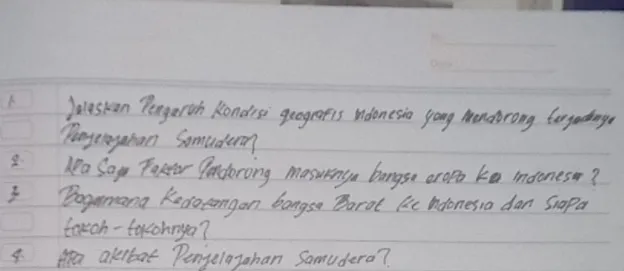 1. Jelaskan Pengaruh Kondisi geografis indonesia yang Mendorong terjadinya
Penjelajahan Samudera?
2. Apa Saja Faktor Pendorong masuknya bangsa eropa ke indonesia?
3 Bagaimana Kedatangan bangsa Barat Ke Indonesia dan Siapa
tokoh-tokohnya?
4. Apa akibat Penjelajahan Samudera?